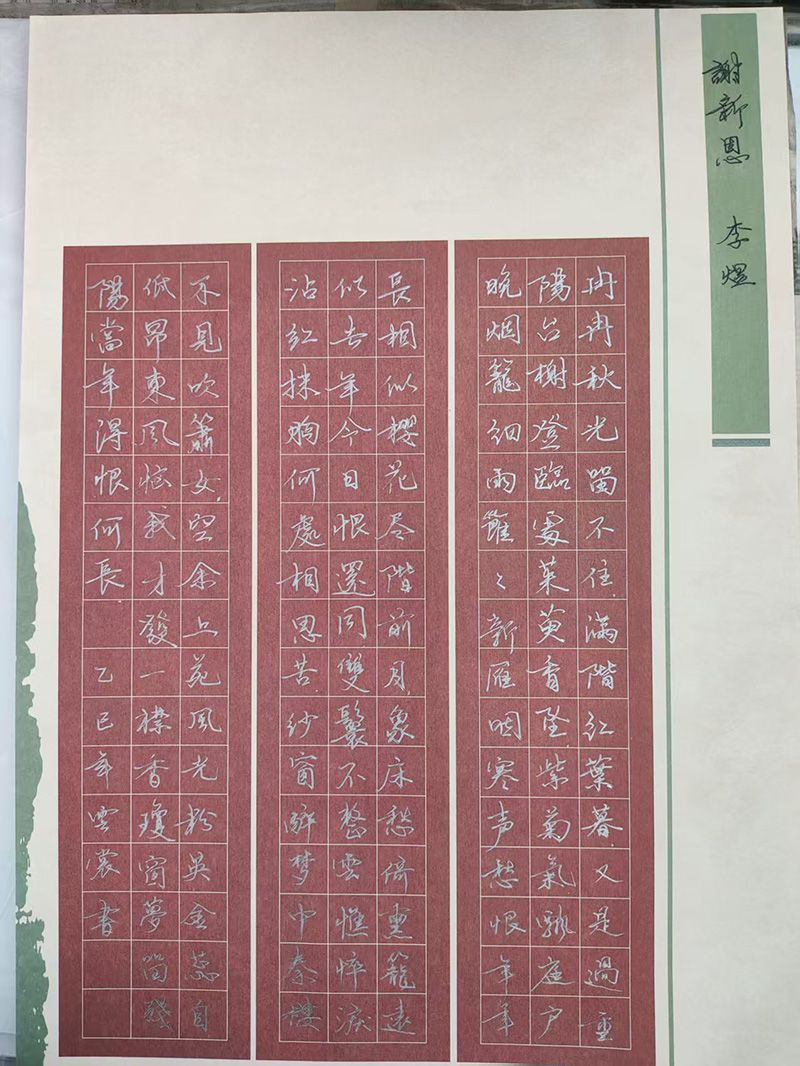 謝新恩 李煜
冉冉秋光留不住滿階紅葉暮又是過重
陽台榭登臨處茱萸香墜紫菊氣飄庭户
晚烟籠細雨雝〻新雁咽寒声愁恨年年
長相似櫻花尽階前月象床愁倚熏籠遠
似去年今日恨還同雙鬟不整雲憔悴淚
沾紅抹胸何處相思苦紗窗醉梦中秦樓
不見吹簫女空余上苑風光粉英金蕊自
低昂東風惱我才發一襟香瓊窗夢留殘
陽當年得恨何長 乙巳年雲裳書